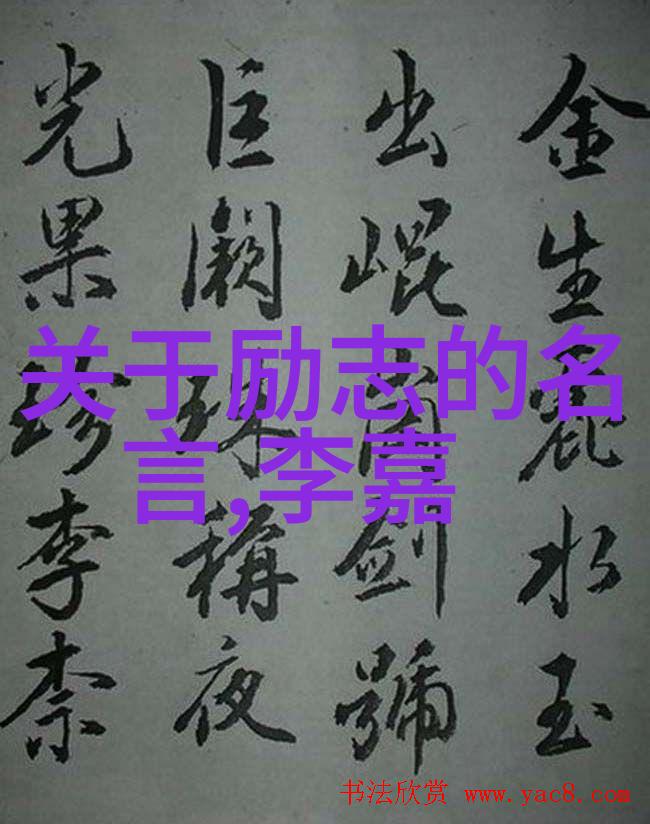 金生麗水玉
出崐岡劍號
巨闕珠稱夜
光果珍李柰
关于励志的名
言,李嘉
书法欣赏 www.yac8.com